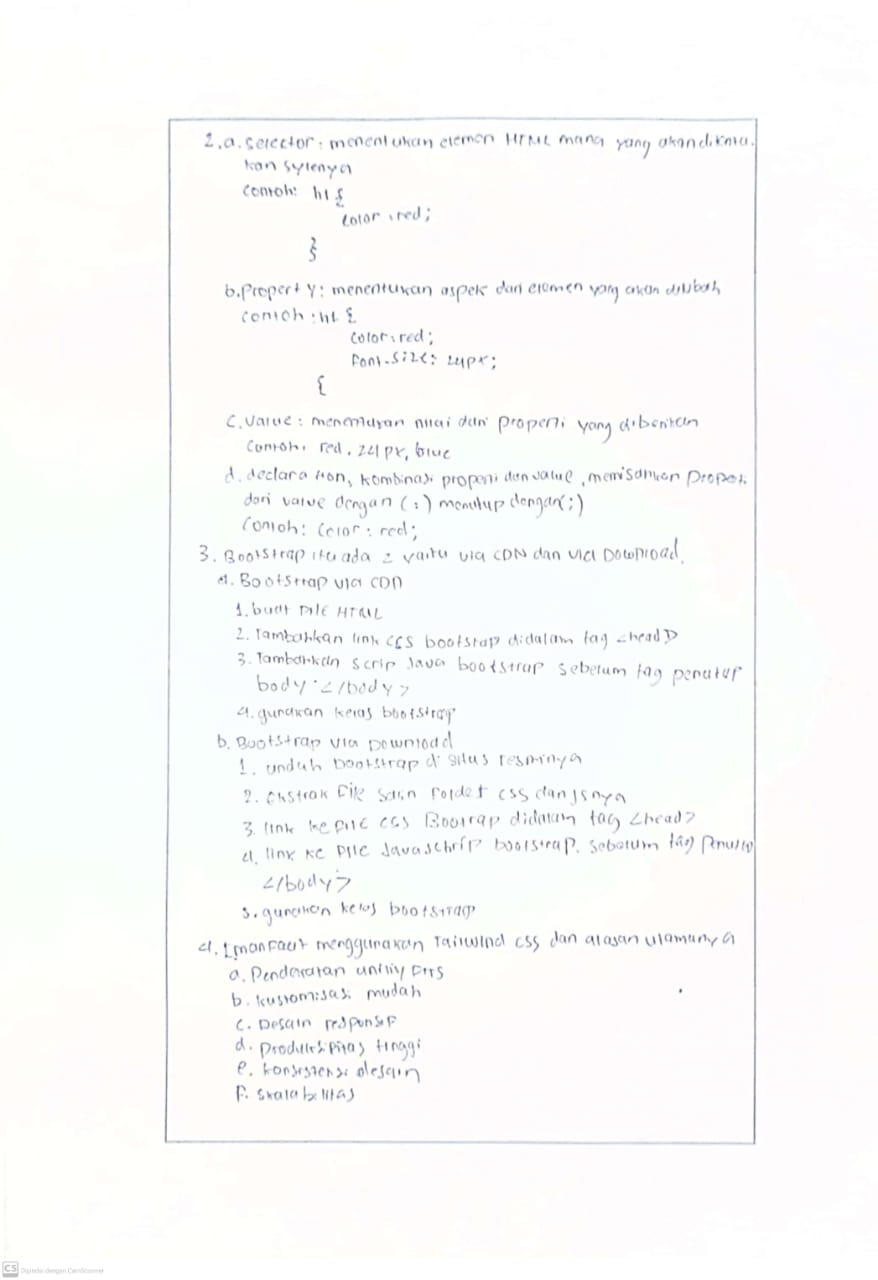 2.a. selector : menentukan elemen HTML mana yang akan dikena.
kan sylenya
contoh: h1 {
color : red;
}
b. Property : menentukan aspek dari elemen yang akan diubah
contoh : h1 {
color : red;
font-size: 24px;
{
c. Value : menentukan nilai dari properti yang diberikan
contoh. red, 24px, blue
d. declaration, kombinasi properti dan value, memisahkan Properti
dari value dengan (:) menutup dengan (;)
contoh: color : red;
3. Bootstrap itu ada 2 yaitu via CDN dan via Download.
a. Bootstrap via CDN
1. buat file HTML
2. Tambahkan link CSS bootstrap didalam tag <head>
3. Tambahkan scrip Java bootstrap sebelum tag penutup
body </body>
4. gunakan kelas bootstrap
b. Bootstrap via Download
1. unduh bootstrap di situs resminya
2. Ekstrak File salin folder css dan jsnya
3. link ke file css Bootrap didalam tag <head>
4. link ke file Javaschrip bootstrap. sebelum tag Penutup
</body>
5. gunakan kelas bootstrap
4. 1 manfaat menggunakan Tailwind css dan alasan utamanya
a. Pendekatan utility
b. kustomisasi mudah
c. Desain responsif
d. produktifitas tinggi
e. konsistensi desain
F. skalabilitas
CS Dipindai dengan CamScanner